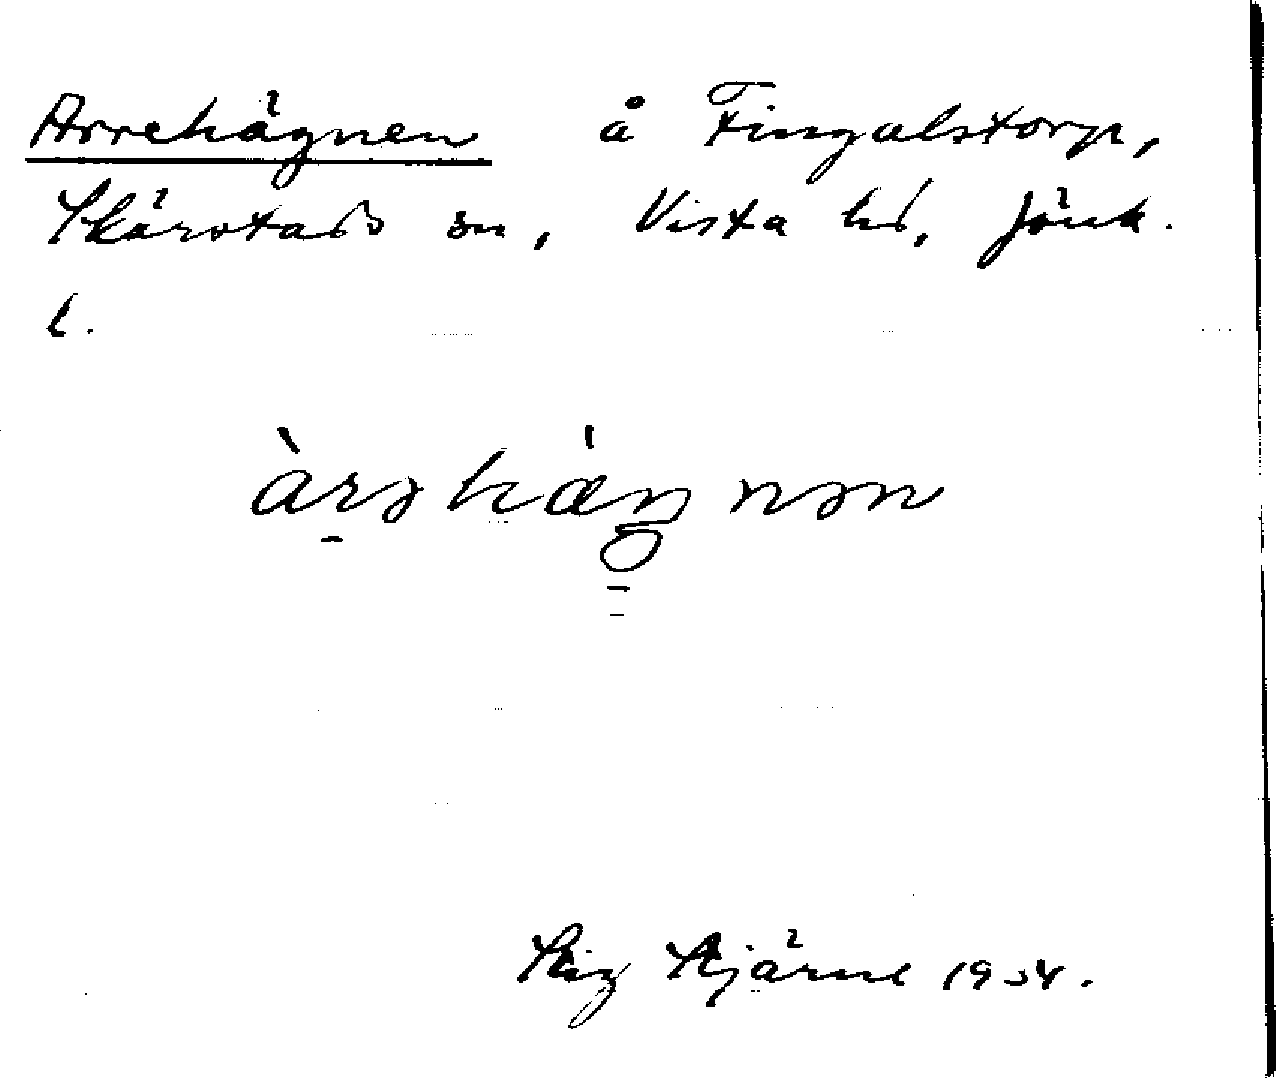 Arrehägnen å Fingalstorp,
Skärstads sn, Vista hd, Jönk.
l.
àrəhǽgnən
Stig Hjärne 1954.